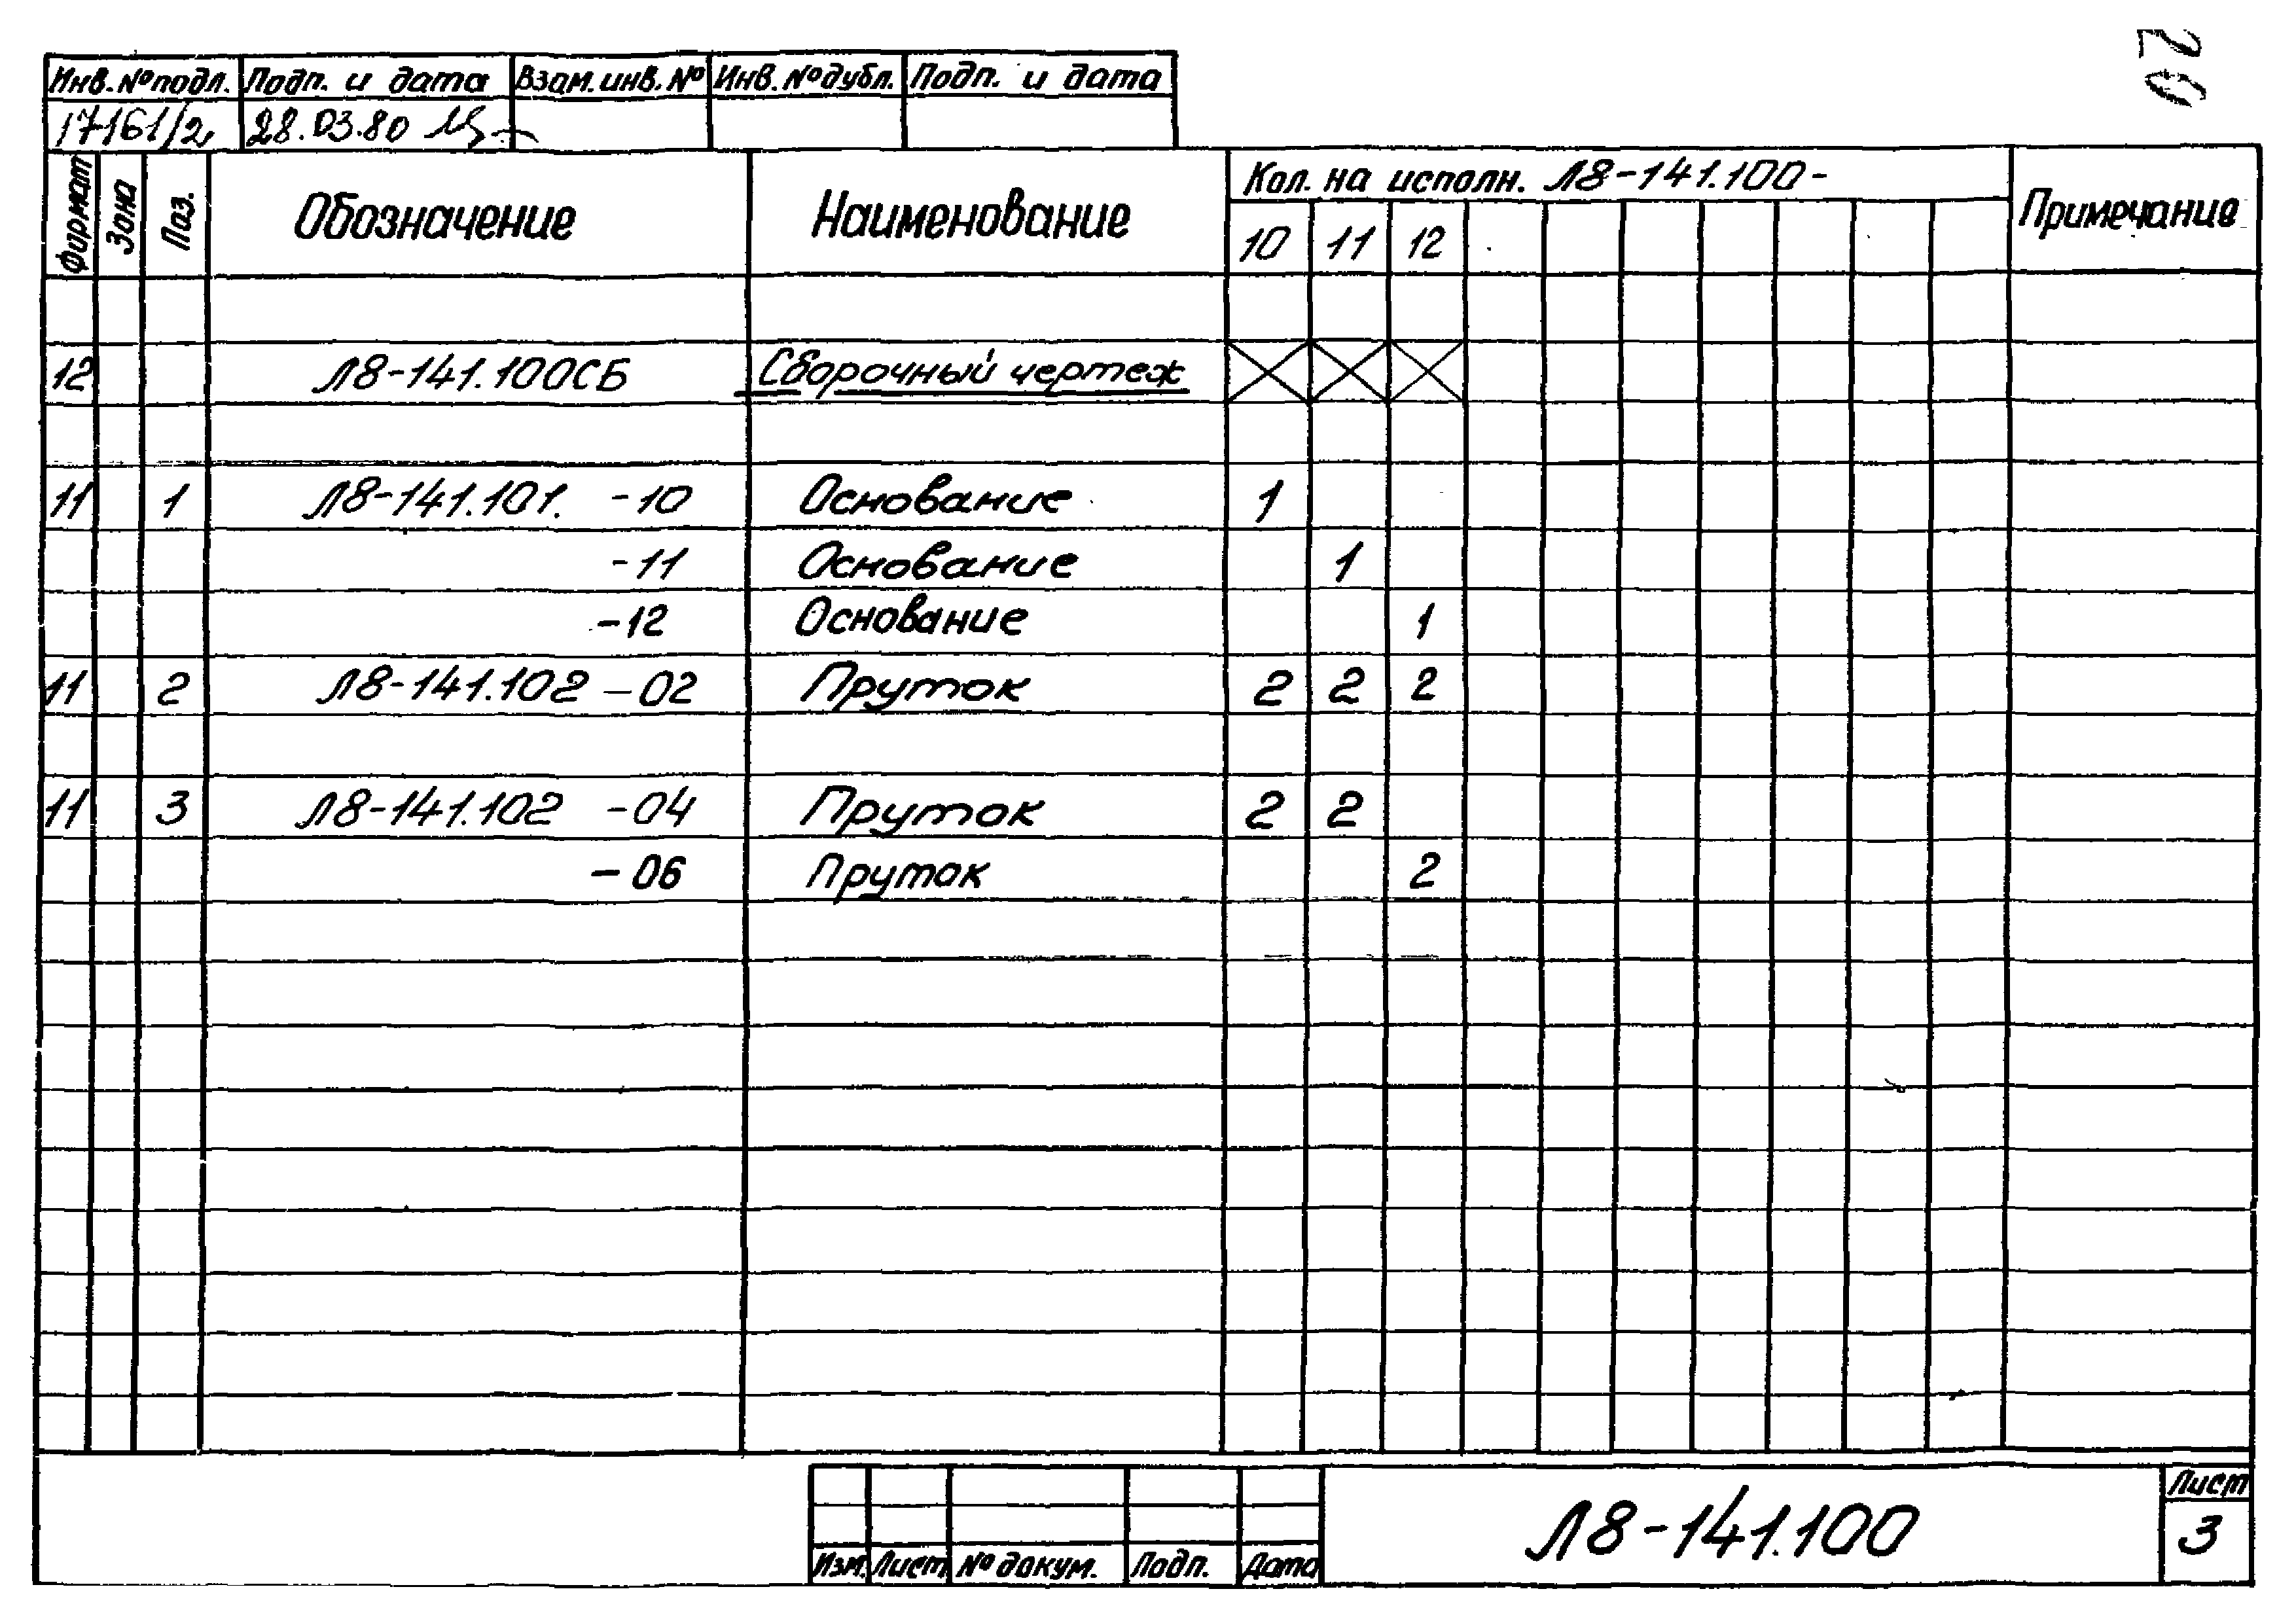 20
Инв. № подл. Подп. и дата Взам. инв. № Инв. № дубл. Подп. и дата
17161/2 28.03.80
Формат Зона Поз. Обозначение Наименование Кол. на исполн. Л8-141.100- Примечание
10 11 12
12 Л8-141.100СБ Сборочный чертеж
11 1 Л8-141.101. -10 Основание 1
-11 Основание 1
-12 Основание 1
11 2 Л8-141.102 -02 Пруток 2 2 2
11 3 Л8-141.102 -04 Пруток 2 2
-06 Пруток 2
Изм. Лист № докум. Подп. Дата
Л8-141.100
Лист
3